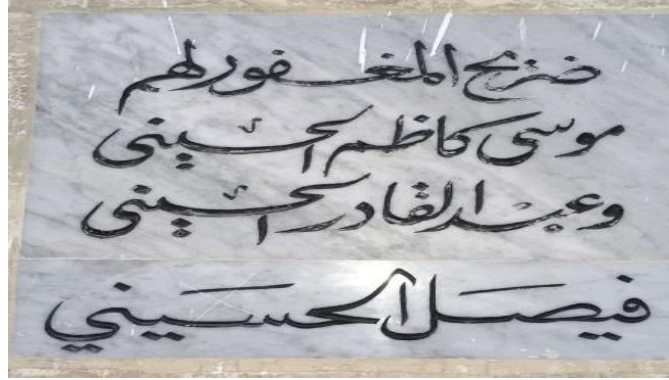 ضريح المغفور لهم
موسى كاظم الحسيني
وعبد القادر الحسيني
فيصل الحسيني